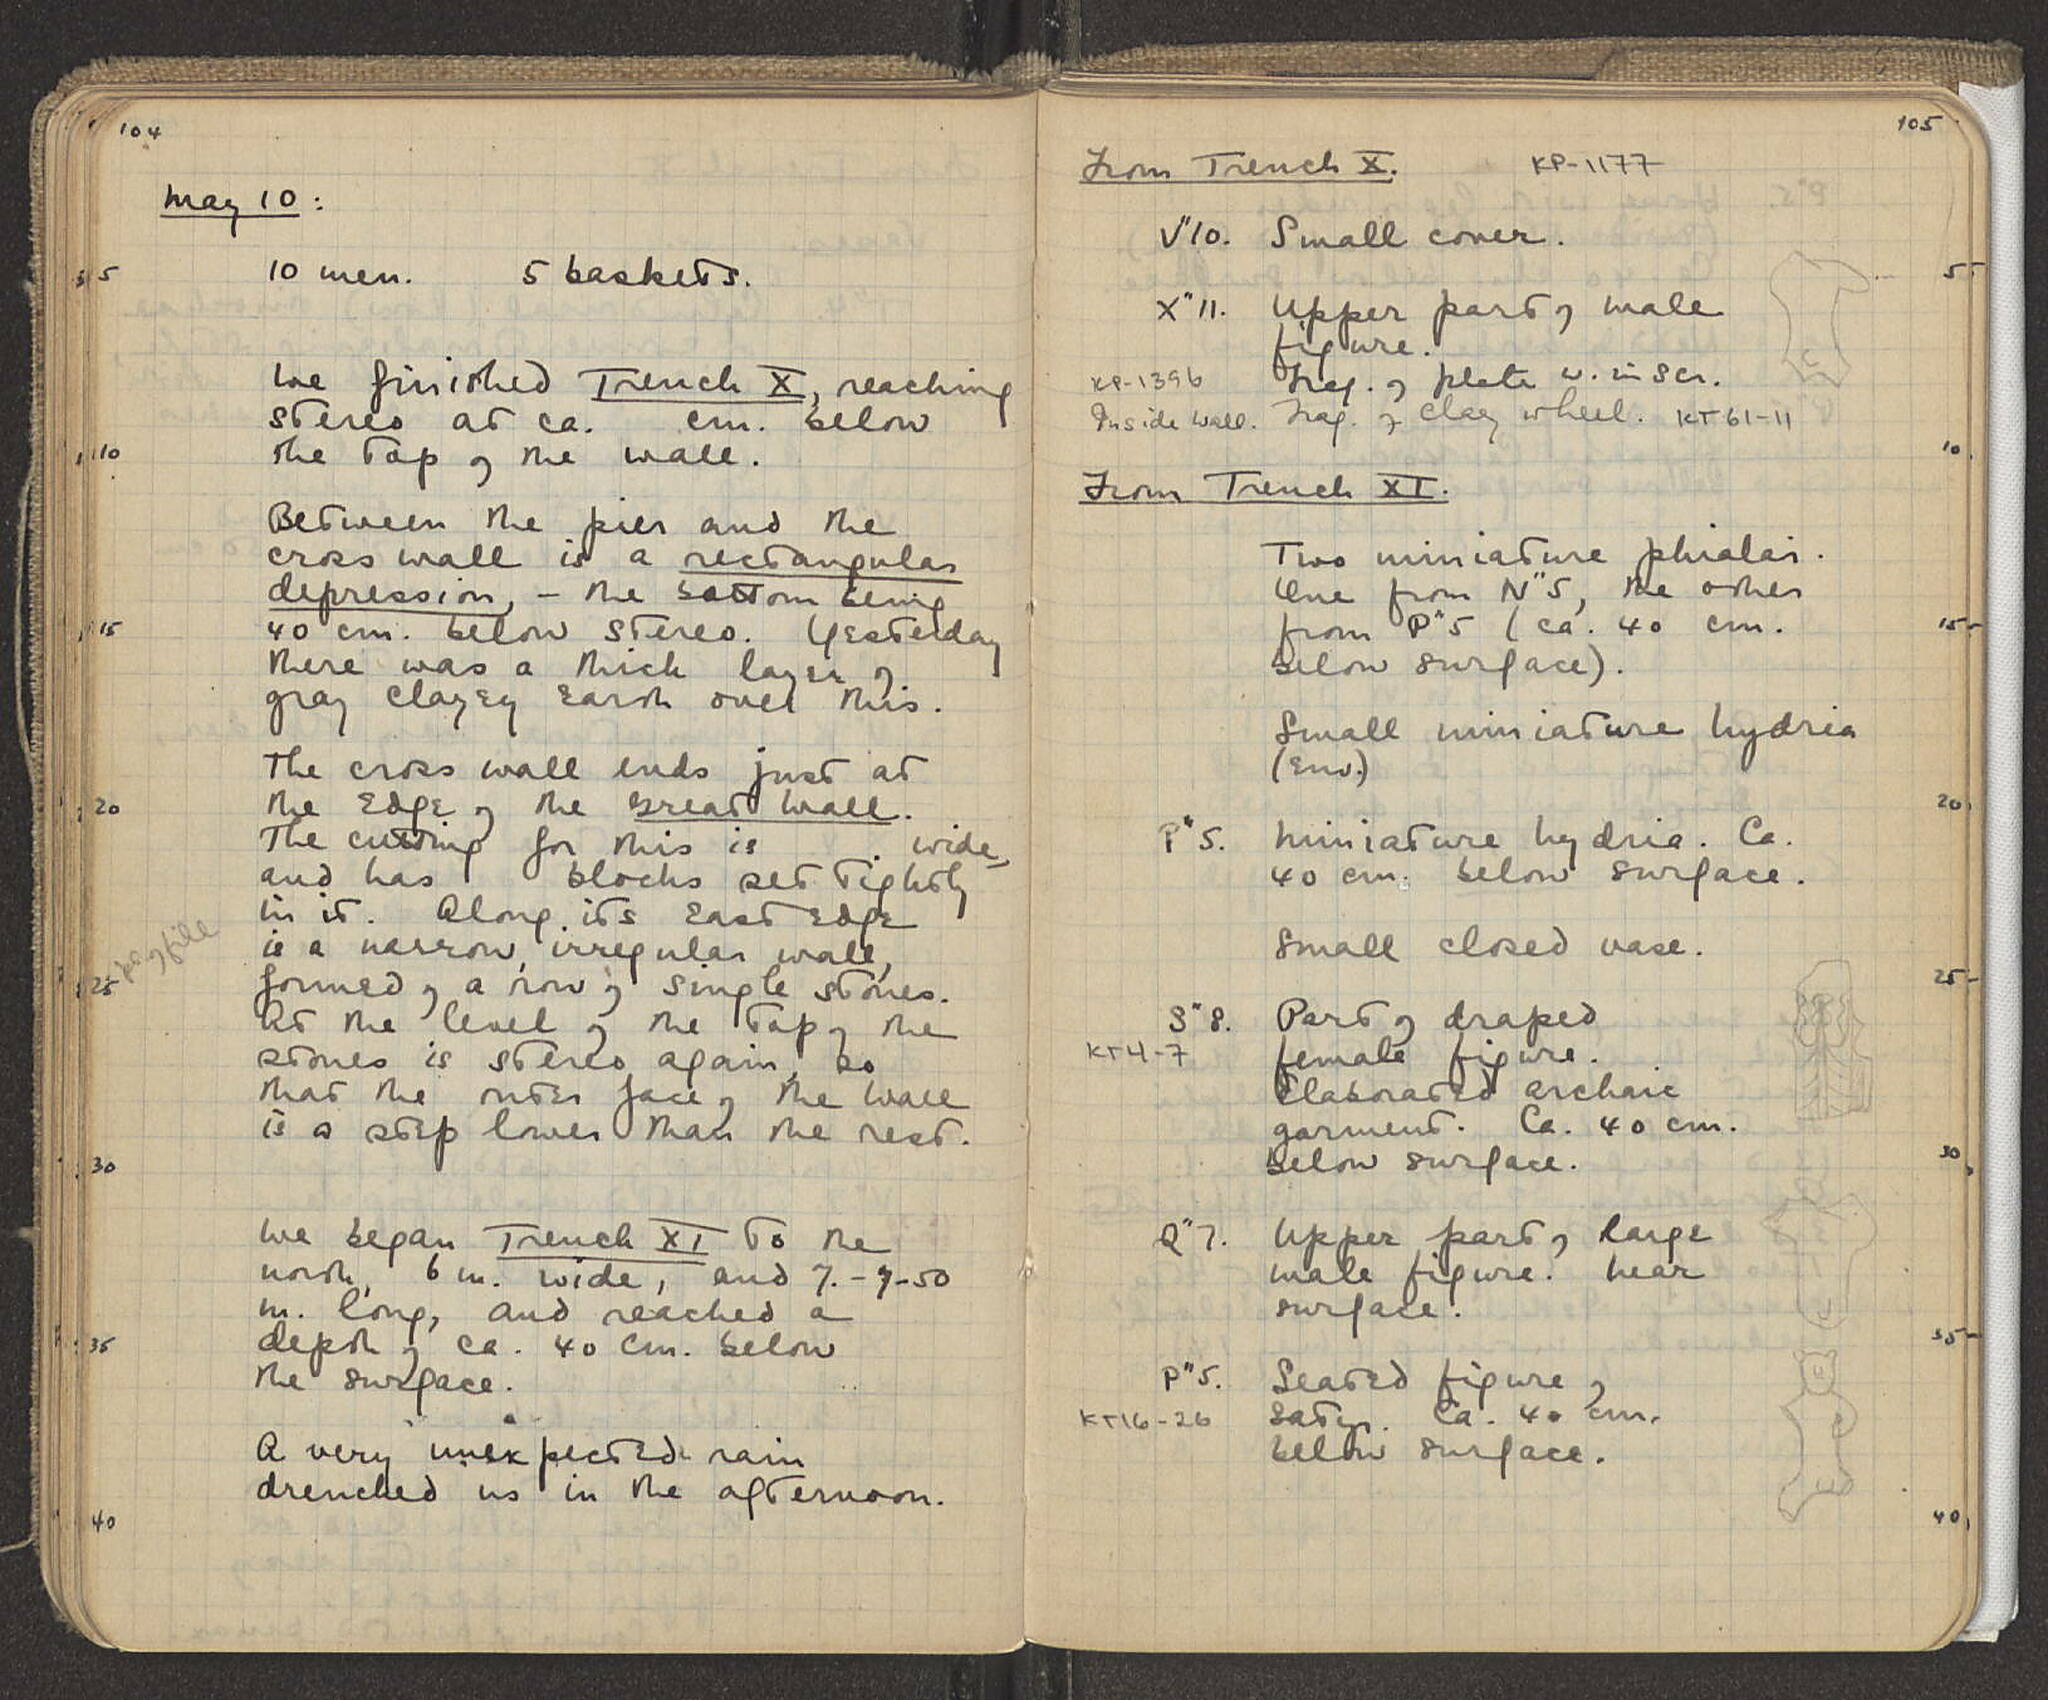 104
May 10:
5
10 men. 5 baskets.
We finished Trench X, reaching
stereo at ca. cm. below
10
the top of the wall.
Between the pier and the
cross wall is a rectangular
depression, – the bottom being
15
40 cm. below stereo. Yesterday
there was a thick layer of
gray clayey earth over this.
The cross wall ends just at
20
the edge of the Great Wall.
The cutting for this is . wide,
and has blocks set tightly
in it. Along its East Edge
is a narrow, irregular wall,
25
formed of a row of single stones.
At the level of the top of the
stones is stereo again, so
that the outer face of the wall
is a step lower than the rest.
30
We began Trench XI to the
north, 6 m. wide, and 7.-7-50
m. long, and reached a
35
depth of ca. 40 cm. below
the surface.
A very unexpected rain
drenched us in the afternoon.
40
105
From Trench X. KP-1177
V"10. Small cover.
5
X"11. Upper part of male
figure.
KP-1396 Frag. of plate w. inscr.
Inside wall. Frag. of clay wheel. KT61-11
10
From Trench XI.
Two miniature phialai.
One from N"5, the other
15
from P"5 (ca. 40 cm.
below surface).
Small miniature hydria
(Env.)
20
P"5. Miniature hydria. Ca.
40 cm. below surface.
Small closed vase.
25
S"8. Part of draped
KT4-7 female figure.
Elaborated archaic
garment. Ca. 40 cm.
30
below surface.
Q"7. Upper part of large
male figure. Near
surface.
35
P"5. Seated figure of
KT16-26 satyr. Ca. 40 cm.
below surface.
40